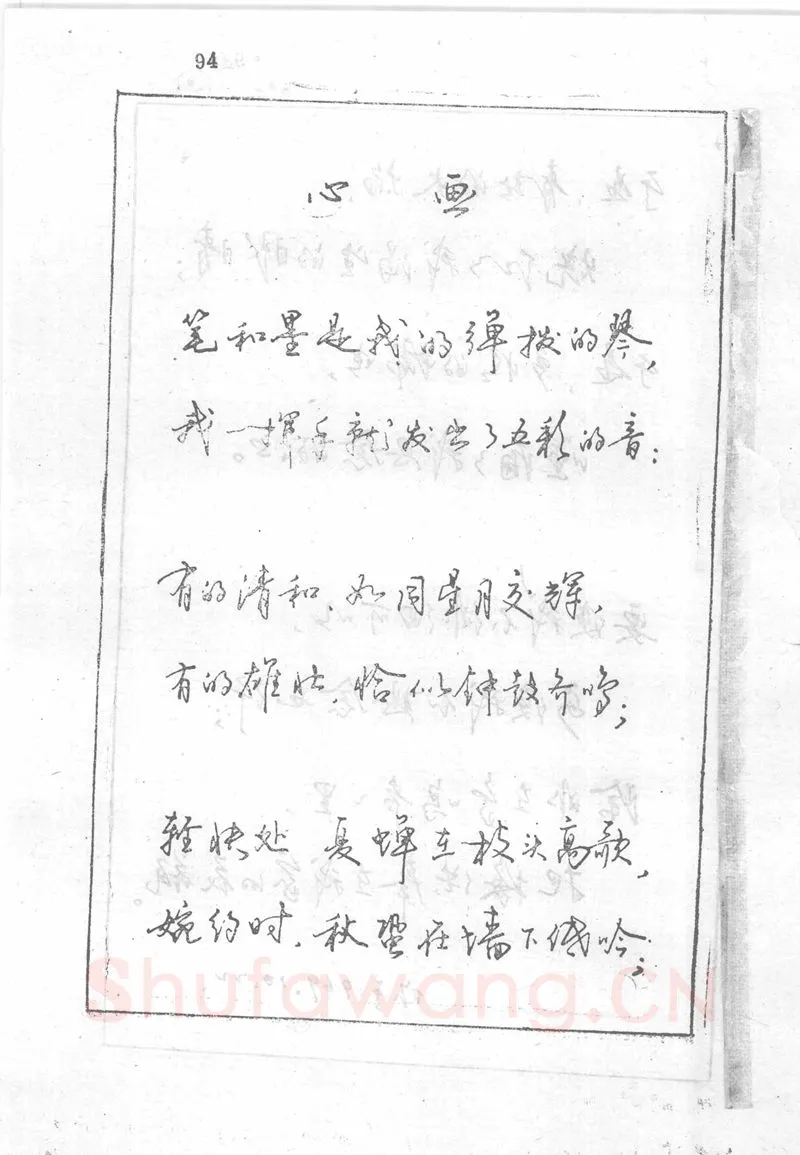 94
心画
笔和墨是我的弹拨的琴,
我一挥手就发出了五彩的音:
有的清和,如同星月交辉,
有的雄壮,恰似钟鼓齐鸣;
轻快处 夏蝉在枝头高歌,
婉约时,秋蛩在墙下低吟;
Shufawang.CN